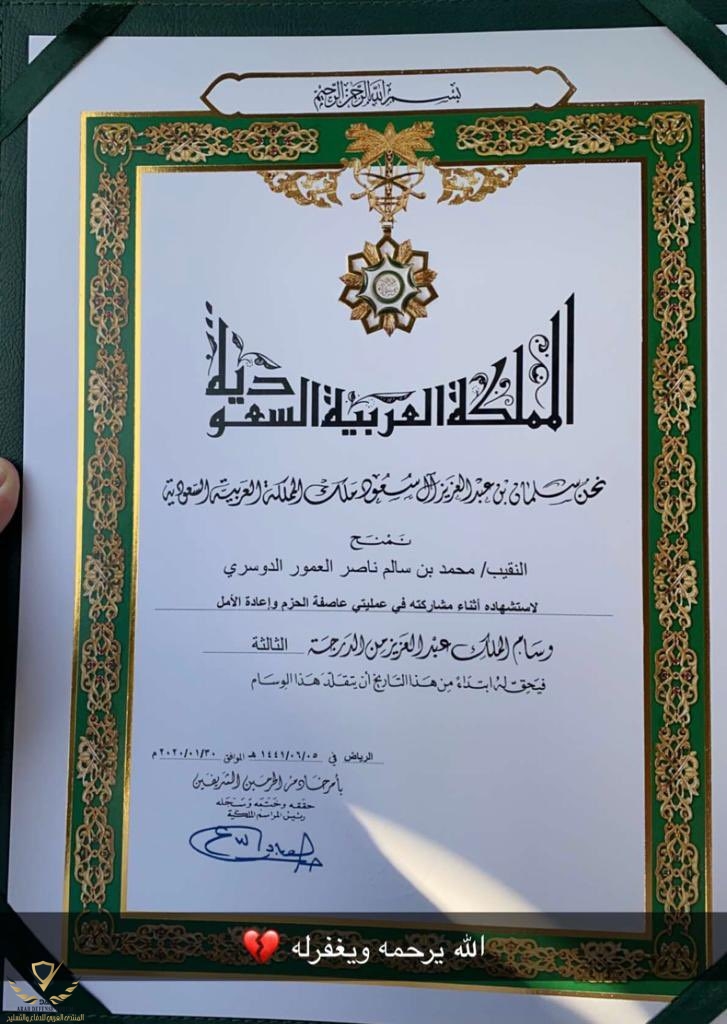 بسم الله الرحمن الرحيم
المملكة العربية السعودية
نحن سلمان بن عبدالعزيز آل سعود ملك المملكة العربية السعودية
نمنح
النقيب/ محمد بن سالم ناصر العمور الدوسري
لاستشهاده أثناء مشاركته في عمليتي عاصفة الحزم وإعادة الأمل
وسام الملك عبدالعزيز من الدرجة الثالثة
فيحق له ابتداءً من هذا التاريخ أن يتقلد هذا الوسام
الرياض في ١٤٤١/٠٦/٠٥ هـ الموافق ٢٠٢٠/٠١/٣٠ م
بأمر خادم الحرمين الشريفين
حققه وختمه وسجله
رئيس المراسم الملكية
الله يرحمه ويغفرله 💔
المنتدى العربي للدفاع والتسليح